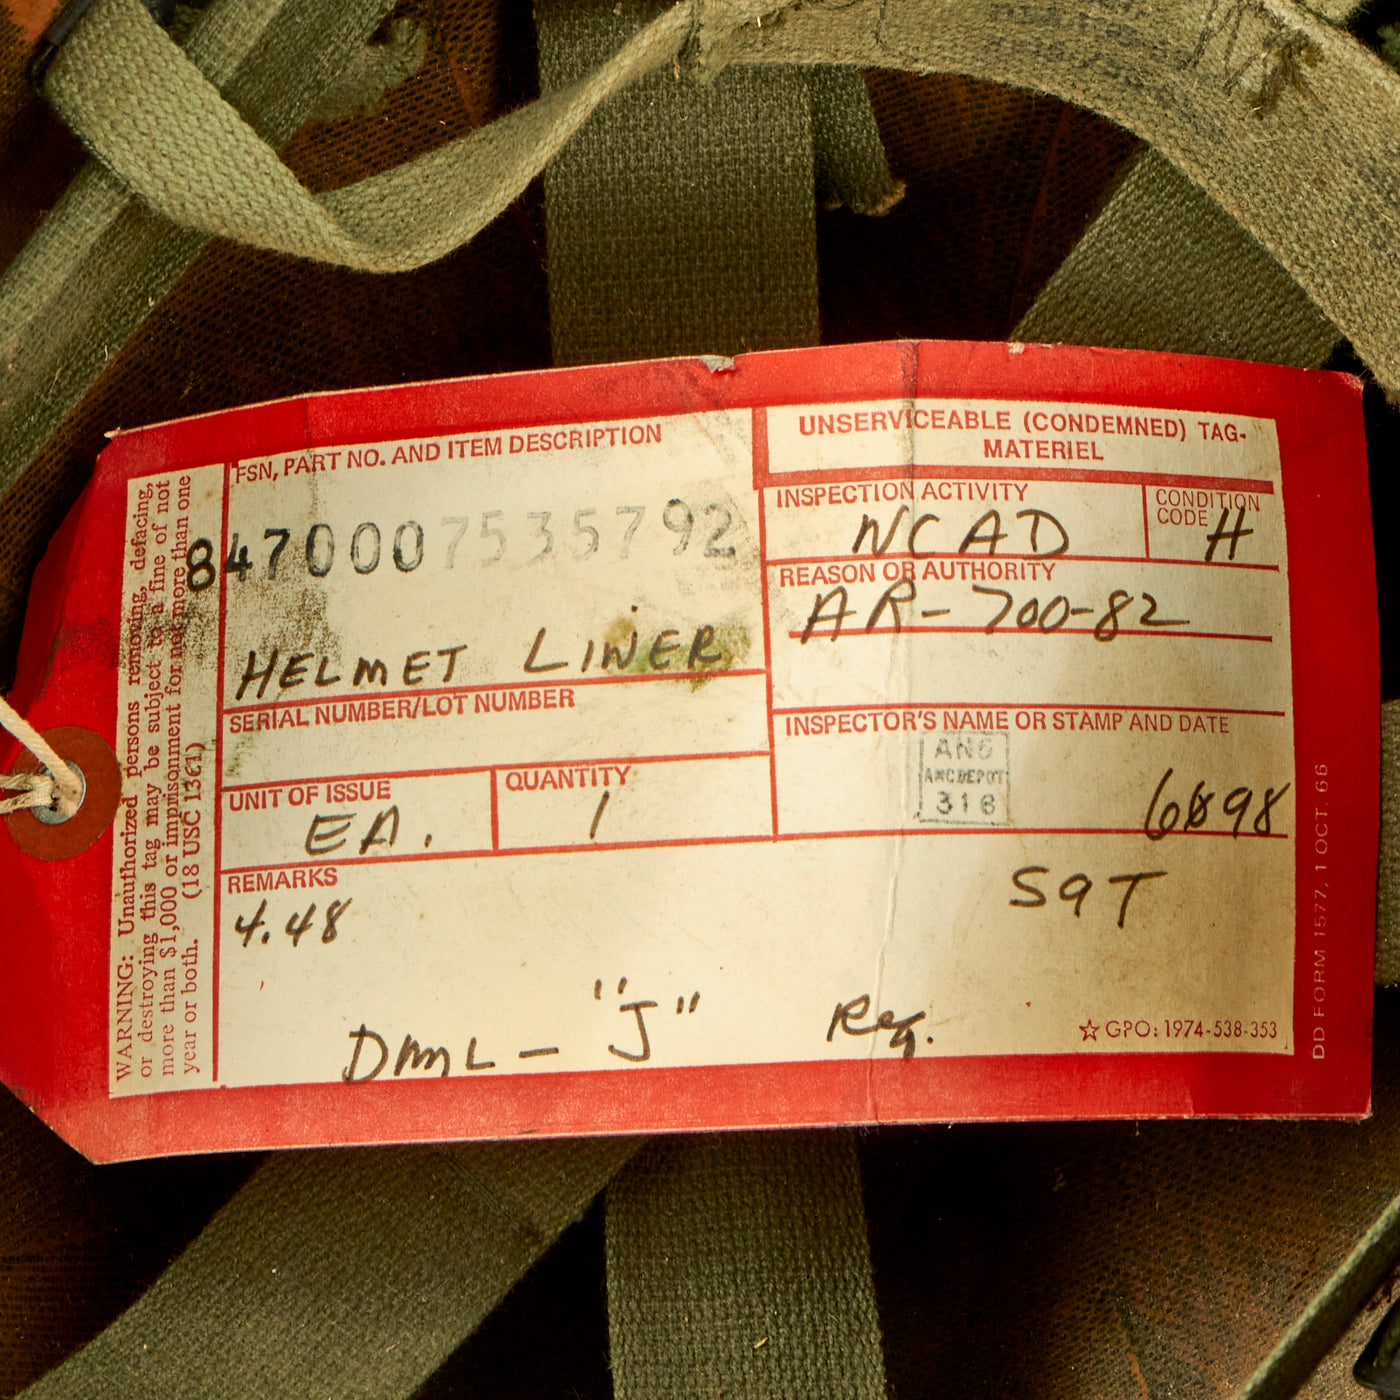 WARNING: Unauthorized persons removing, defacing,
or destroying this tag may be subject to a fine of not
more than $1,000 or imprisonment for not more than one
year or both. (18 USC 1361)
FSN, PART NO. AND ITEM DESCRIPTION
8470007535792
HELMET LINER
SERIAL NUMBER/LOT NUMBER
UNIT OF ISSUE
EA.
QUANTITY
1
UNSERVICEABLE (CONDEMNED) TAG-
MATERIEL
INSPECTION ACTIVITY
NCAD
CONDITION
CODE
H
REASON OR AUTHORITY
AR-700-82
INSPECTOR'S NAME OR STAMP AND DATE
316
REMARKS
4.48
SGT
DMML - "J" Reg.
☆ GPO: 1974-538-353
DD FORM 1577, 1 OCT. 66